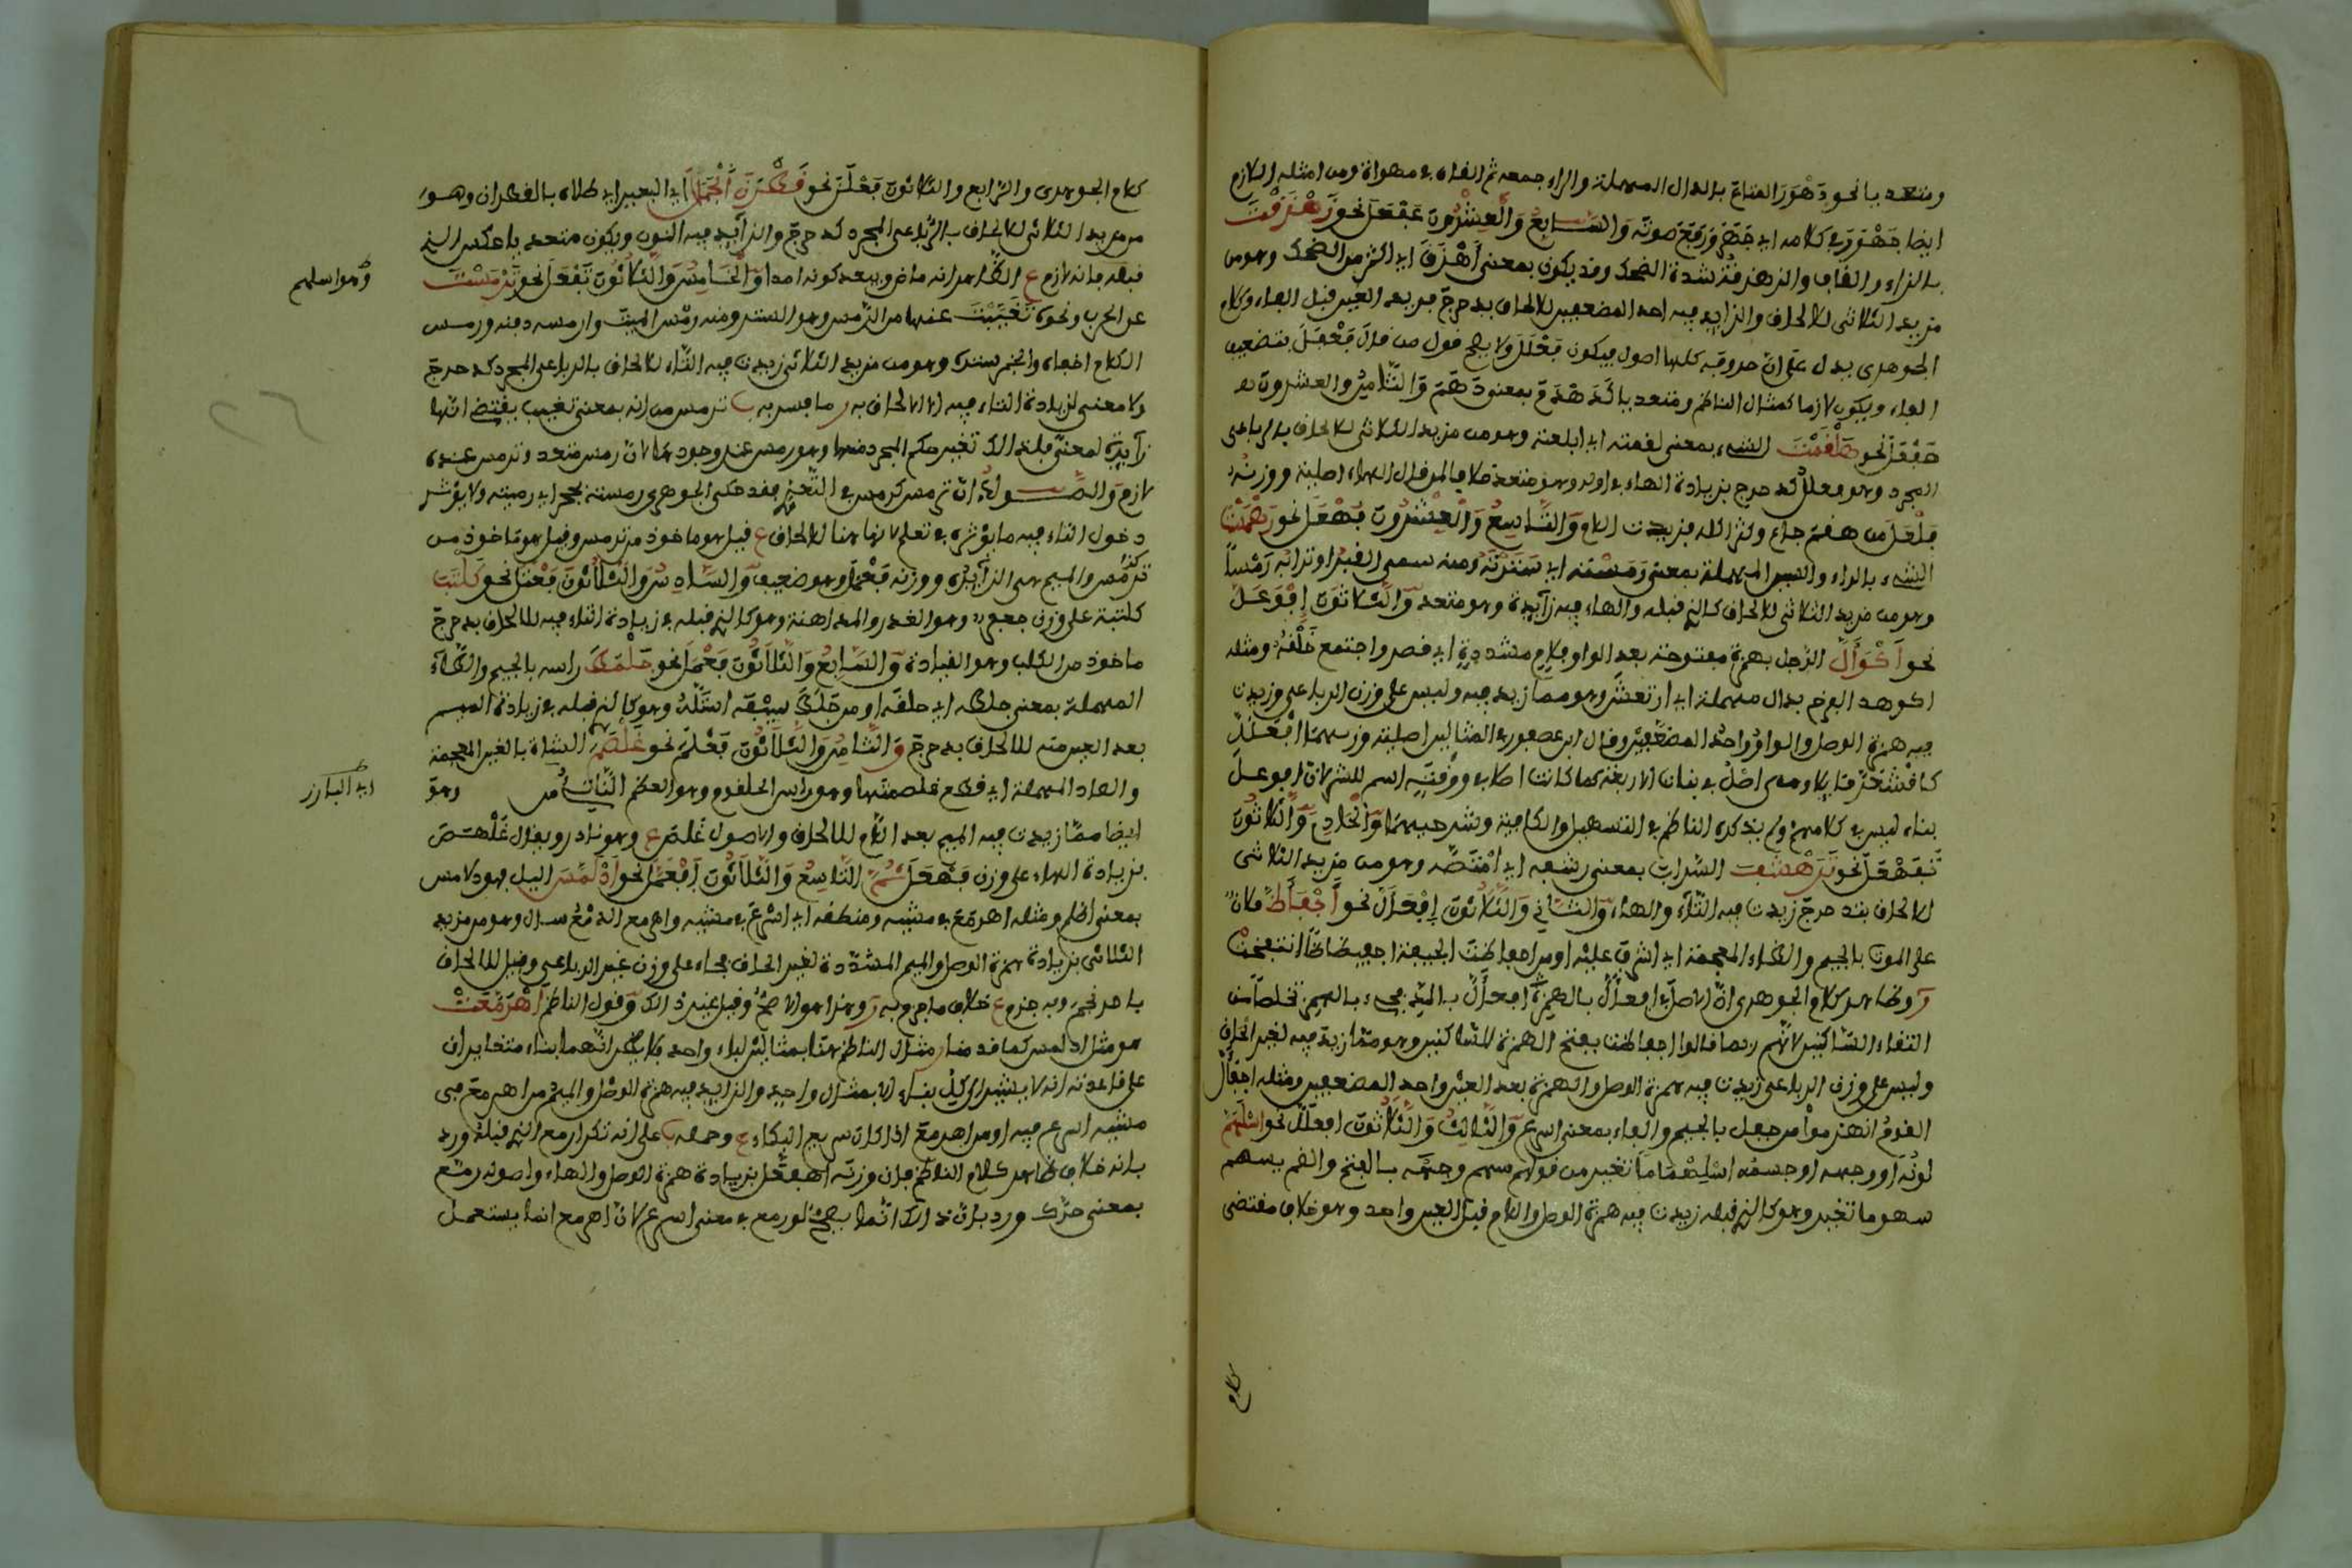 ومتعديا نحو دَهْوَرَ المتاعَ بالدال المهملة والراء جمعه ثم القاه في مهواة ومن امثله اللازم
ايضا جَهْوَرَ في كلامه اي جَهَرَ ورَفَعَ صوتَه وَالسَّابِعُ وَالْعِشْرُونَ عَفْعَلَ نحو زَهْزَقْتَ
بالزاء والقاف والزهزقة شدة الضحك وقد يكون بمعنى أَهْزَقَ اي اكثر من الضحك وهو من
مزيد الثلاثي للالحاق والزايد فيه احد المضعفين للالحاق بدحرج مزيد العين قبل الفاء وكلام
الجوهري يدل على ان حروفه كلها اصول فيكون فَعْلَلَ ولا يصح قول من قال فَعْفَلَ بتضعيف
الفاء ويكون لازما كمثال الناظم ومتعديا كَدَهْدَمَ بمعنى هَدَمَ وَالثَّامِنُ والعشرون
هَفْعَلَ نحو هَلْقَمْتَ الشيء بمعنى لقمته اي ابتلعته وهو من مزيد الثلاثي للالحاق بالرباعي
المجرد وهو فعلل كدحرج بزيادة الهاء في اوله وهو متعد خلافا لمن قال الهاء اصلية ووزنه
الشيء بالراء والسين المهملة بمعنى رَمَسْتَه اي سَتَرْتَه ومنه سمي القبر او ترابه رَمْساً
وهو من مزيد الثلاثي للالحاق كالذي قبله والهاء فيه زايدة وهو متعد وَالثَّلاثُونَ اِفْوَعَلَّ
نحو اَكْوَأَلَّ الرجل بهمزة مفتوحة بعد الواو ولام مشددة اي قصر واجتمع خَلْقُه ومثله
اكوهد الفرخ بدال مهملة اي ارتعش وهو مما زيد فيه وليس على وزن الرباعي وزيدت
فيه همزة الوصل والواو واحد المضعفين وقال ابن عصفور في المثالين اصلية وزنهما افْعَلَلَّ
بناء ليس في كلامهم ولم يذكره الناظم في التسهيل والكافية وشرحيهما وَالْحَادِي وَالثَّلاثُونَ
تَفَهْعَلَ نحو تَرَهْشَفَ الشراب بمعنى رشفه اي امْتَصَّه وهو من مزيد الثلاثي
للالحاق بتدحرج زيدت فيه التاء والهاء وَالثَّانِي وَالثَّلاثُونَ اِفْعَأَلَّ نحو اَجْفَأَظَّ فلان
على الموت بالجيم والظاء المعجمة اي اشرف عليه او من اجفأظت الجيفة اجفيظاظا انتفخت
وظاهر كلام الجوهري ان الاصل في افعألَّ بالهمزة افعالَّ بالمد فجيء بالهمز تخلصا من
التقاء الساكنين لانهم ربما قالوا اجفأظت بفتح الهمزة للساكنين وهو مما زيد فيه لغير الحاق
وليس على وزن الرباعي زيدت فيه همزة الوصل والهمزة بعد العين واحد المضعفين ومثله اجفأل
القوم انهزموا من جفل بالجيم والفاء بمعنى اسرع وَالثَّالِثُ وَالثَّلاثُونَ افعلّل نحو اسْلَهَمَّ
لونُه او وجهه او جسمه اسْلِهْمَاماً تغير من قولهم سهم وجهه بالفتح والضم يسهم
سهوما تغير وهو كالذي قبله زيدت فيه همزة الوصل واللام قبل العين واحد وهو خلاف مقتضى
كلام
كلام الجوهري والرابع والثلاثون فَعْلَنَ نحو قَطْرَنَ الْجَمَلَ اي البعير اي طلاه بالقطران وهو
من مزيد الثلاثي للالحاق بالرباعي المجرد كدحرج والزايد فيه النون ويكون متعديا عكس الذي
قبله فانه لازم ع الظاهر انه ماض ويبعد كونه امرا وَالْخَامِسُ وَالثَّلاثُونَ تَفْعَلَ نحو تَرْمَسْتَ
وهو اسلهم
عن الحرب ونحوه تَغَيَّبْتَ عنها من الرمس وهو الستر ومنه رمْس الميت وارمسه دفنه ورمس
الكلام اخفاه والخبر ستره وهو من مزيد الثلاثي زيدت فيه التاء للالحاق بالرباعي المجرد كدحرج
ولا معنى لزيادة التاء فيه الا الالحاق به وما فسر به ب ترمس من انه بمعنى تغيب يقتضي انها
زايدة لمعنى فلذلك تغير حكم المجرد منها وهو رمس عند وجود لان رمس متعد وترمس عنده
لازم وَالصَّوابُ انّ ترمس كرمس في التعدي فقد حكى الجوهري رمسته بحجر اي رميته ولا يؤثر
دخول التاء فيه ما يؤثره في تعلم لانها هنا للالحاق ع قيل هو ماخوذ من ترمس وقيل هو ماخوذ من
ترمس والميم هي الزايدة ووزنه فَعْمَلَ وهو ضعيف وَالسَّادِسُ وَالثَّلاثُونَ فَعْتَلَ نحو كَلْتَبَ
كلتبة على وزن جعفر وهو الغدر والمداهنة وهو كالذي قبله في زيادة التاء فيه للالحاق بدحرج
ماخوذ من الكلب وهو القيادة وَالسَّابِعُ وَالثَّلاثُونَ فَعْمَلَ نحو جَلْمَطَ راسه بالجيم والطاء
المهملة بمعنى جلطه اي حلقه او من جَلَطَ سيفه استله وهو كالذي قبله في زيادة الميم
بعد العين منه للالحاق بدحرج وَالثَّامِنُ وَالثَّلاثُونَ فَعْلَمَ نحو غَلْصَمَ الشاة بالغين المعجمة
والصاد المهملة اي قطع غلصمتها وهو راس الحلقوم وهو العظم الناتئ من وهو
اي البارز
ايضا مما زيدت فيه الميم بعد اللام للالحاق والاصول غَلَصَ ع وهو نادر ويقال غَلْهَصَ
بزيادة الهاء على وزن فَعْهَلَ ثُمَّ التَّاسِعُ وَالثَّلاثُونَ اِفْعَمَّلَ نحو ادْلَمَّسَ الليل فهو دلامس
بمعنى اظلم ومثله اهرمّع في مشيه ومنطقه اي اسرع في مشيه واهرمع الدمع سال وهو من مزيد
الثلاثي بزيادة همزة الوصل والميم المشددة لغير الحاق فجاء على وزن غير الرباعي وقيل للالحاق
باحرنجم وبه جزم ع خلاف ما جزم به وهذا هو الاصح وقيل غير ذلك وقول الناظم اهْرَمَّعَتْ
هو مثل ادلمس كما قدمنا مثال الناظم هنا بمثالين لبناء واحد فلا يظن انهما بناء متغايران
على قاعدته انه لا يشير الى كل بناء الا بمثال واحد والزايد فيه همزة الوصل والميم من اهرمع في
مشيه اسرع فيه او من اهرمع اذا كان سريع البكاء ع وحمله ب على انه تكرار مع الذي قبله ورد
بانه خلاف ظاهر كلام الناظم فان وزنه اهفعّل بزيادة همزة الوصل والهاء واصوله رمع
بمعنى حرّك ورد بان ذلك انما يصح لو رمع في معنى اسرع لان اهرمع انما يستعمل